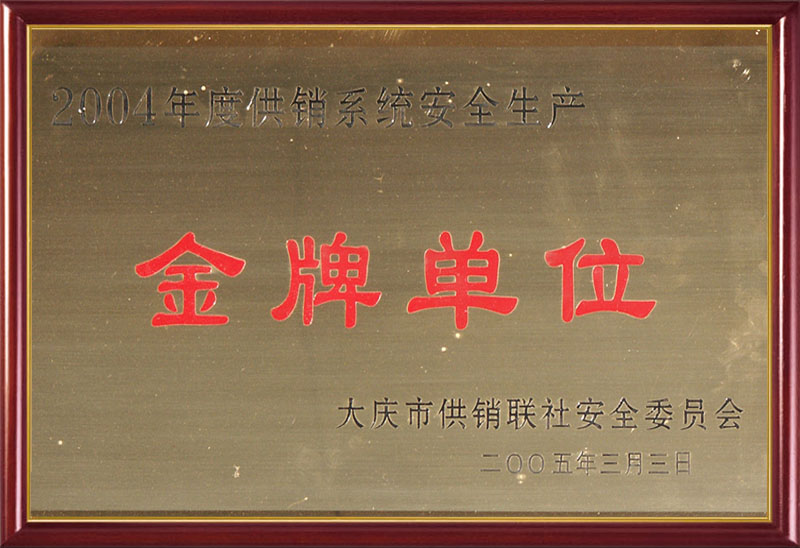 2004年度供销系统安全生产
金牌单位
大庆市供销联社安全委员会
二〇〇五年三月三日